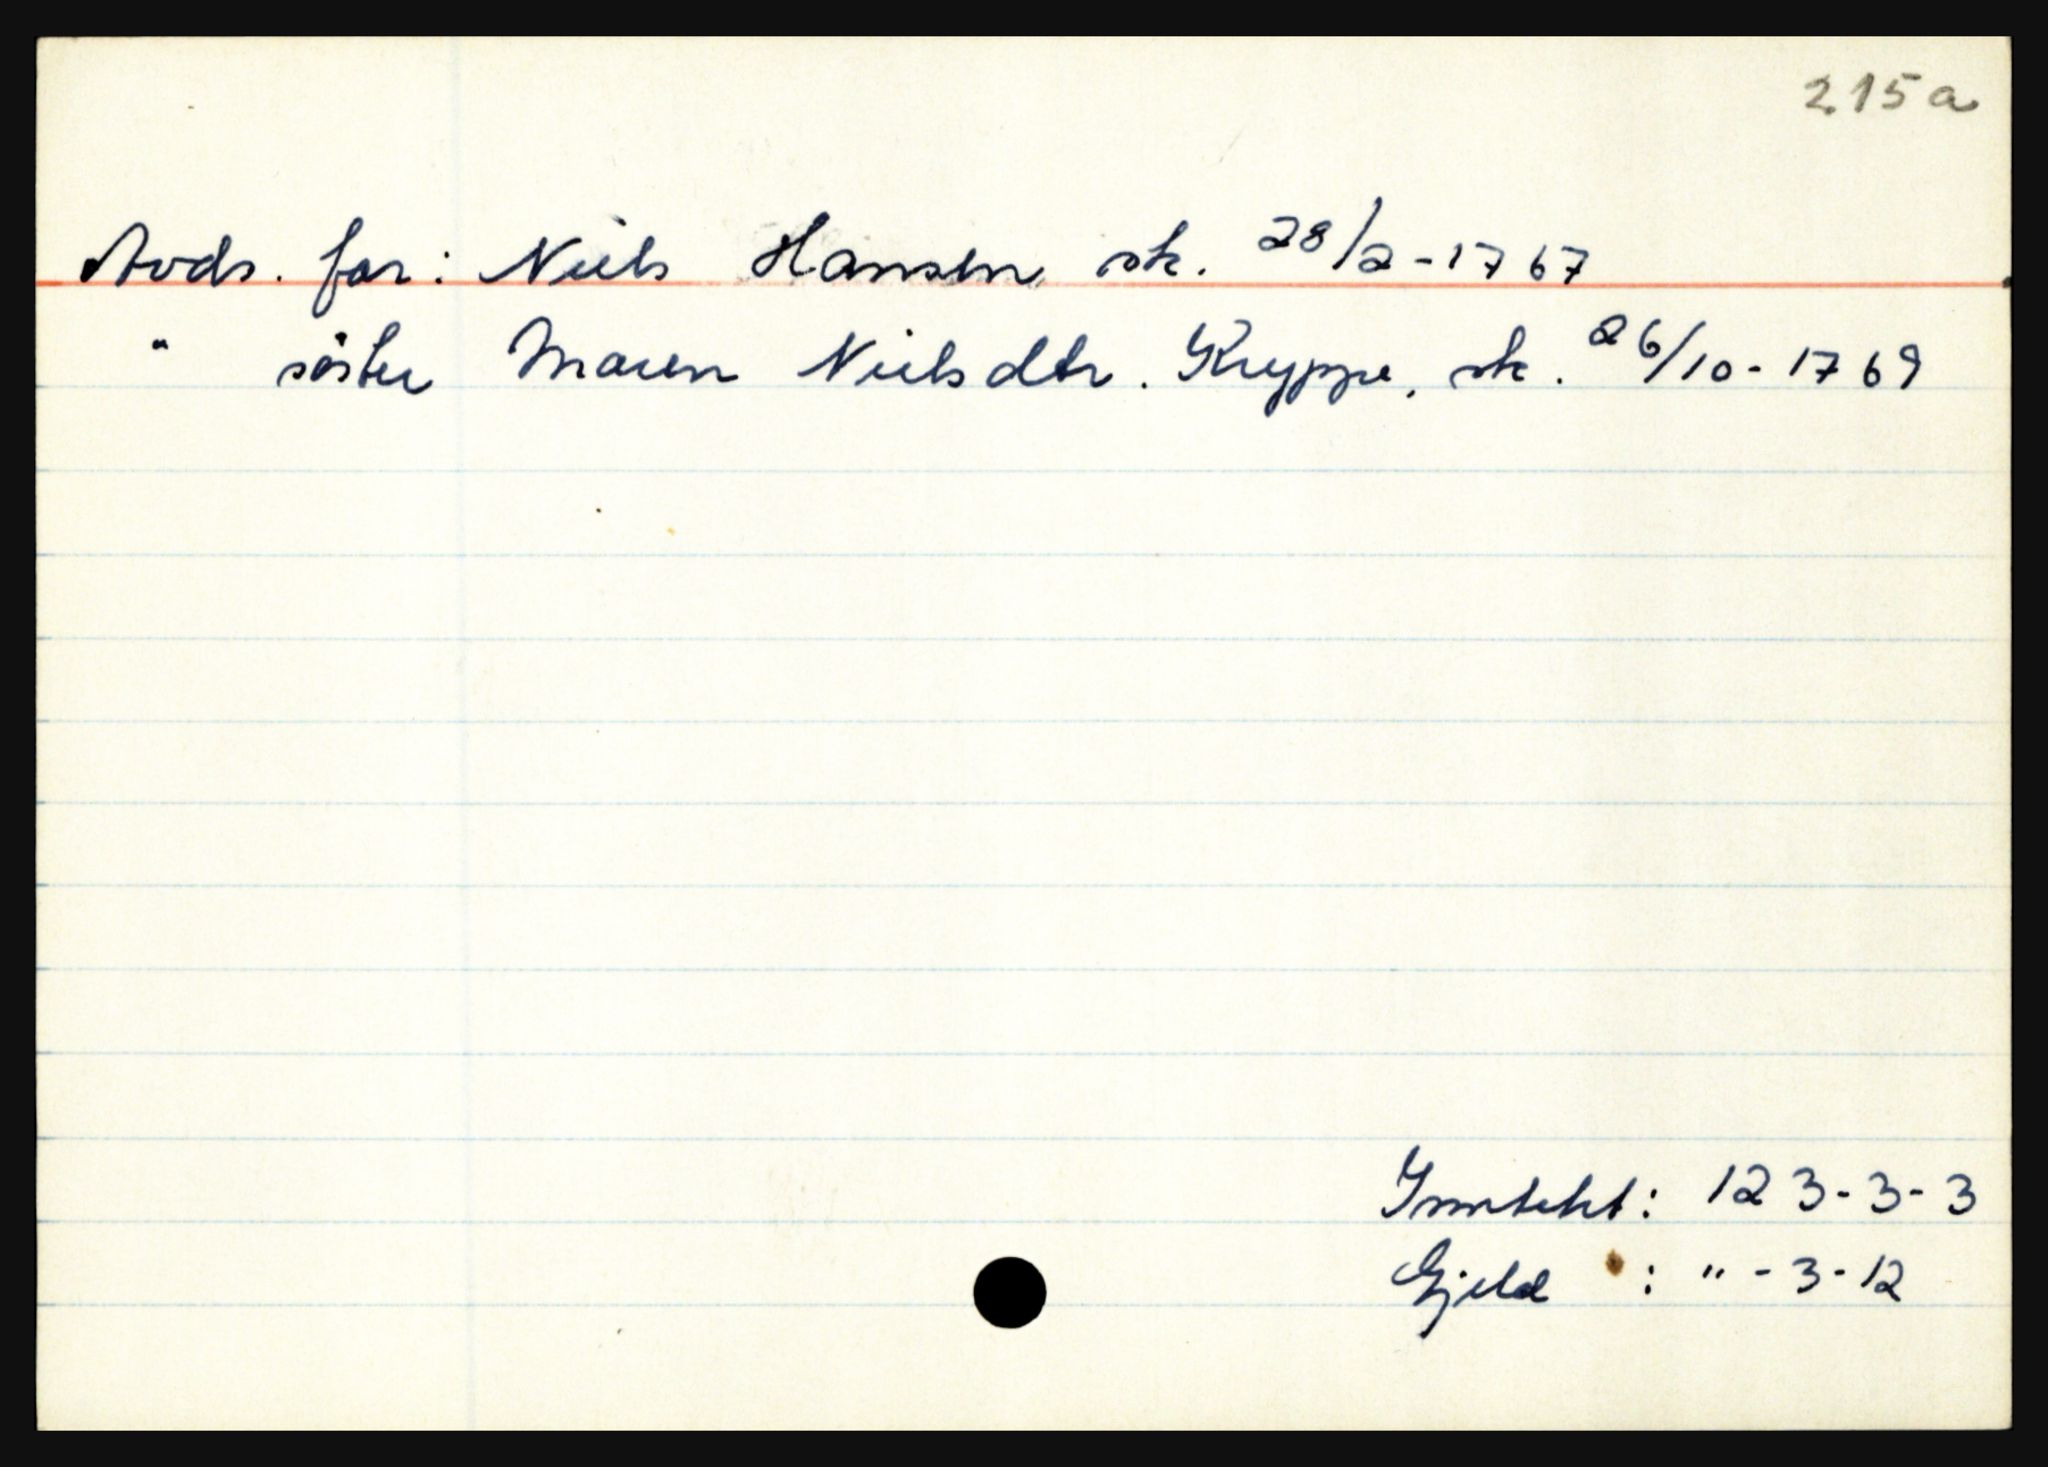 215a
Avds. far: Niels Hansen sk. 28/2-1767
" söster Maren Nielsdtr. Kryppe, sk. 26/10-1769
Inntekt: 123-3-3
Gjeld : "-3-12